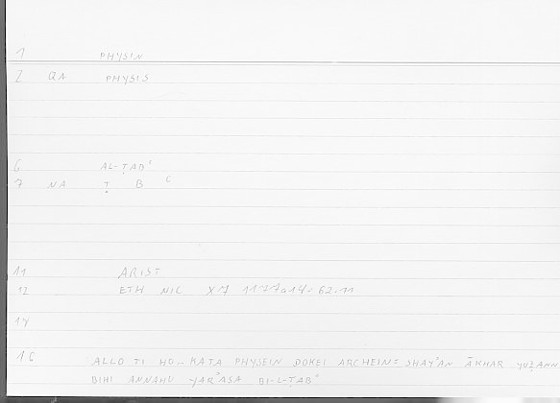 1 PHYSIN
2 QA PHYSIS
6 AL-ṬABʿ
7 NA Ṭ B ʿ
11 ARIST
12 ETH NIC X7 1177a14= 62.11
14
16 ALLO TI HO.. KATA PHYSEIN DOKEI ARCHEIN= SHAYʾAN ĀKHAR YUẒANN
BIHI ANNAHU YARʾASA BI-L-ṬABʿ